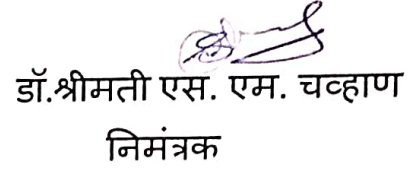 डॉ.श्रीमती एस. एम. चव्हाण
निमंत्रक